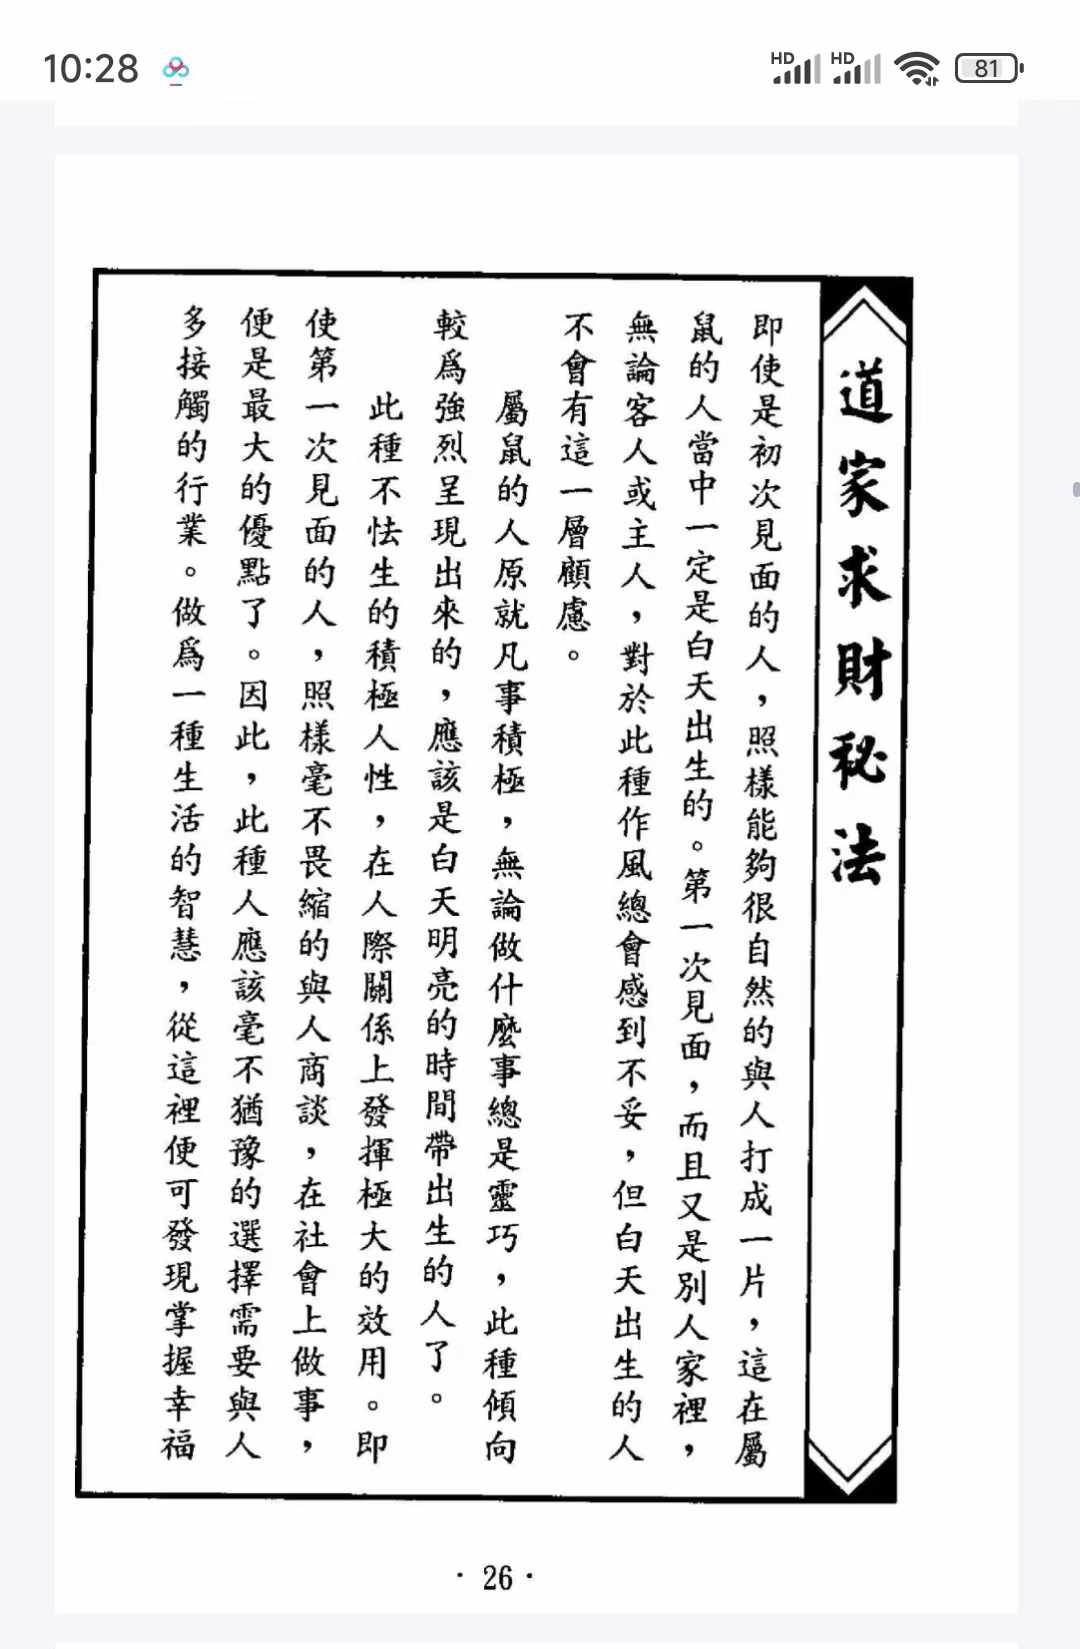 10:28
HD HD 81
道家求財秘法
即使是初次見面的人，照樣能夠很自然的與人打成一片，這在屬
鼠的人當中一定是白天出生的。第一次見面，而且又是別人家裡，
無論客人或主人，對於此種作風總會感到不妥，但白天出生的人
不會有這一層顧慮。
屬鼠的人原就凡事積極，無論做什麼事總是靈巧，此種傾向
較爲強烈呈現出來的，應該是白天明亮的時間帶出生的人了。
此種不怯生的積極人性，在人際關係上發揮極大的效用。即
使第一次見面的人，照樣毫不畏縮的與人商談，在社會上做事，
便是最大的優點了。因此，此種人應該毫不猶豫的選擇需要與人
多接觸的行業。做爲一種生活的智慧，從這裡便可發現掌握幸福
·26·